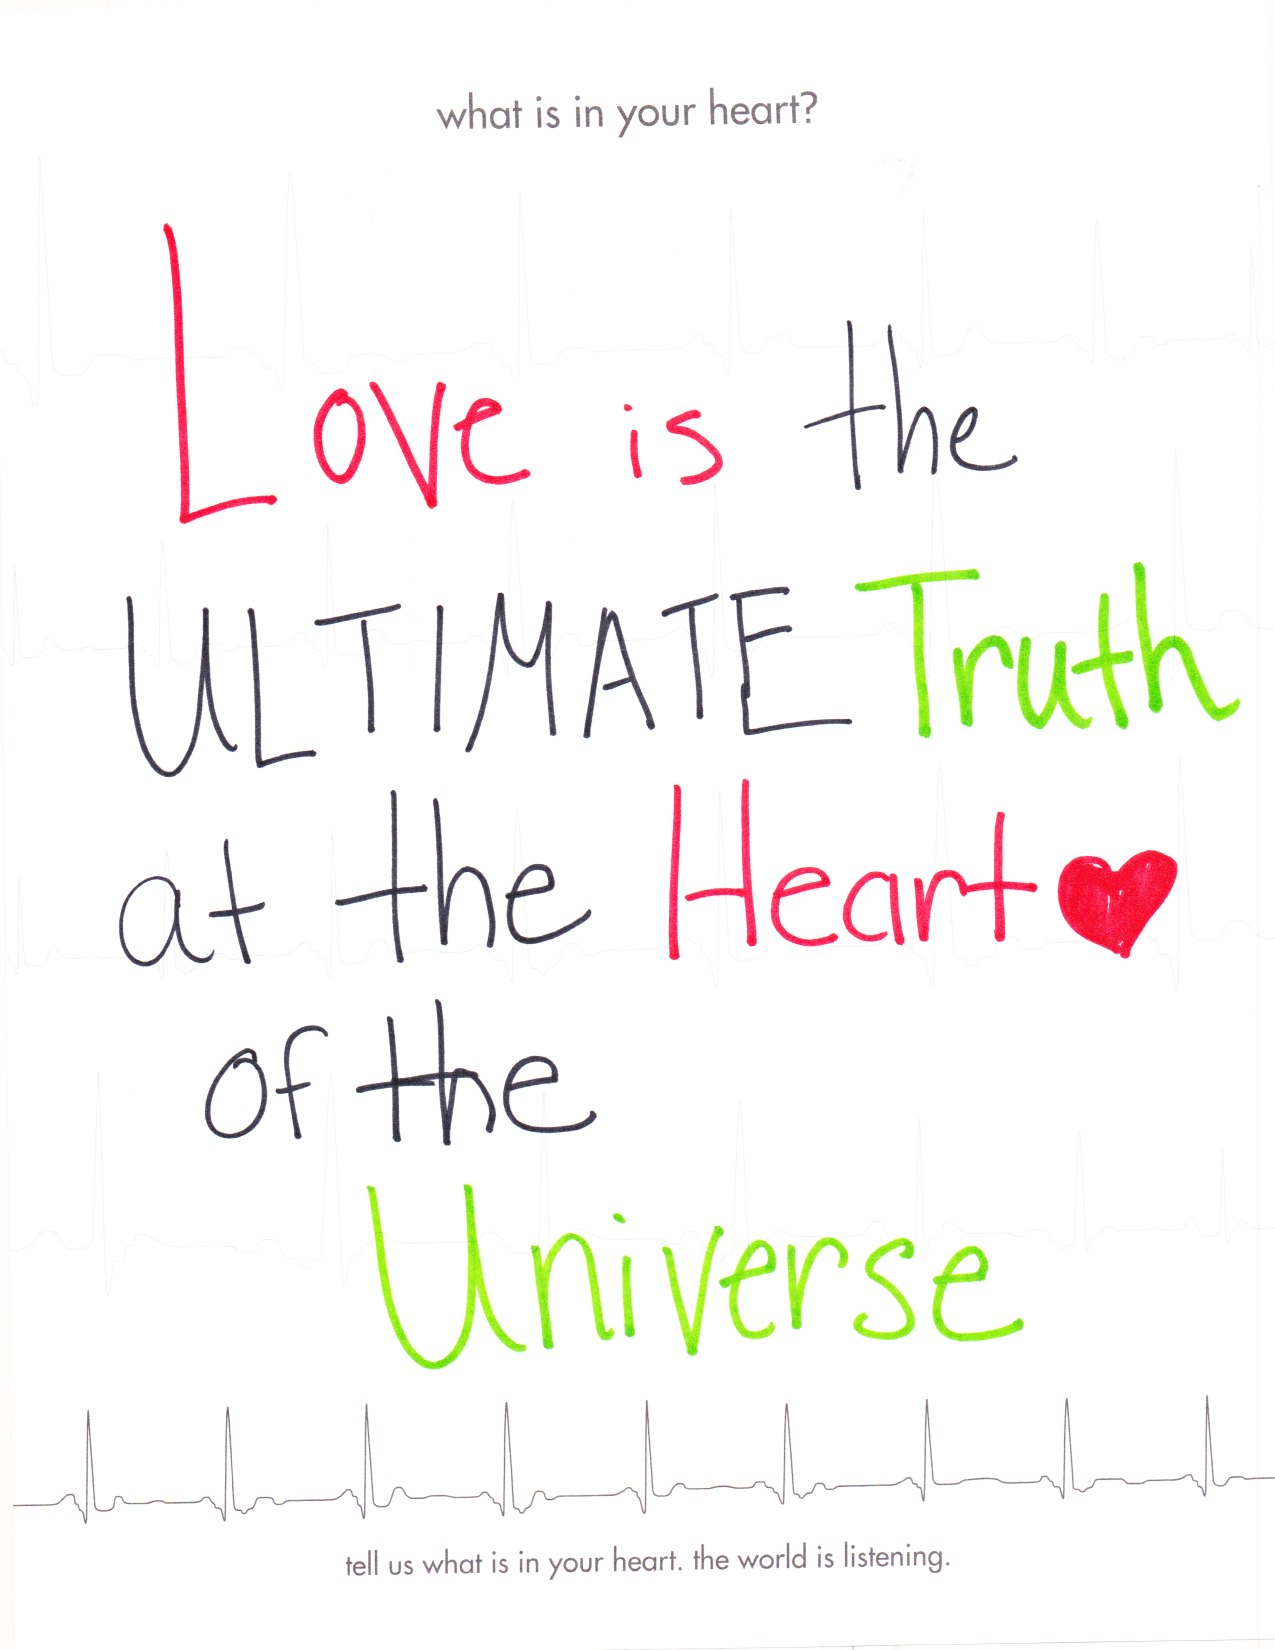 what is in your heart?
Love is the
ULTIMATE Truth
at the Heart
of the
Universe
tell us what is in your heart. the world is listening.